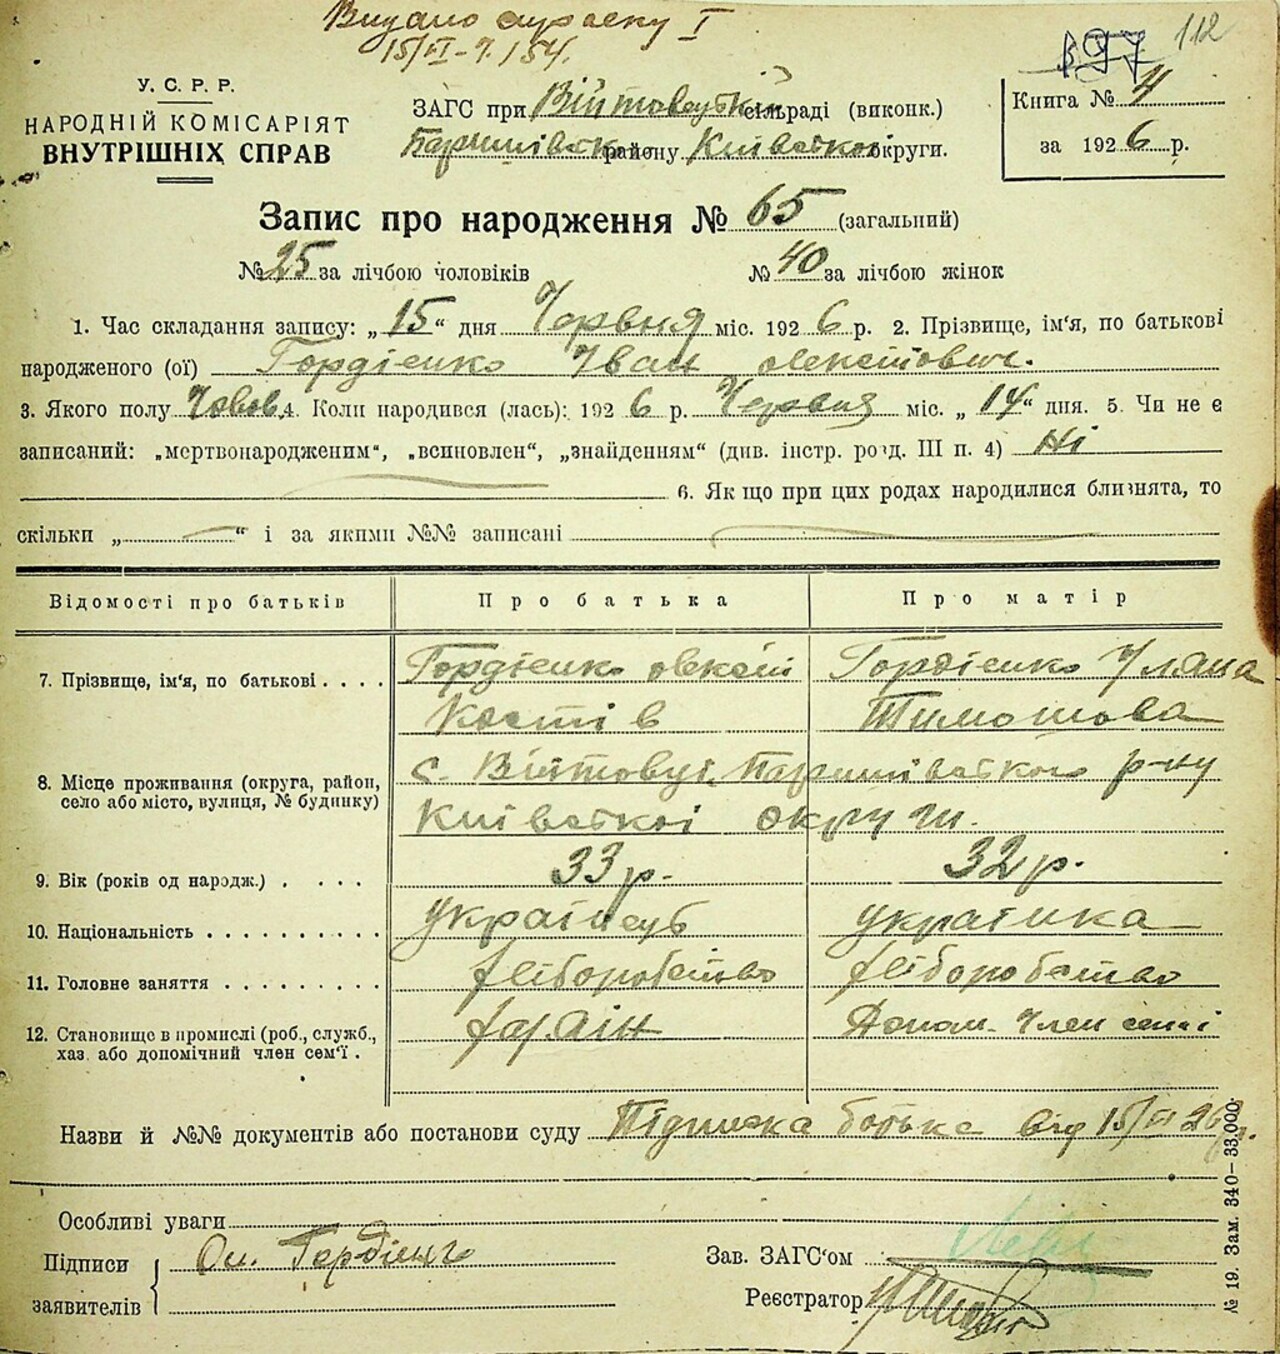 Видано випіску І
15/VI-7. 154.
397 112
У. С. Р. Р.
НАРОДНІЙ КОМІСАРІЯТ
ВНУТРІШНІХ СПРАВ
ЗАГС при Війтовецькій сільраді (виконк.)
Баришівськ району Київської округи.
Книга № 4
за 1926 р.
Запис про народження № 65 (загальний)
№ 25 за лічбою чоловіків № 40 за лічбою жінок
1. Час складання запису: „15“ дня Червня міс. 1926 р. 2. Прізвище, ім'я, по батькові
народженого (ої) Гордієнко Іван олексійович.
3. Якого полу Чолов. 4. Коли народився (лась): 1926 р. Червня міс. „14“ дня. 5. Чи не є
записаний: „мертвонародженим“, „всиновлен“, „знайденням“ (див. інстр. розд. III п. 4) Ні
6. Якщо при цих родах народилися близнята, то
скільки „ “ і за якими №№ записані
Відомості про батьків Про батька Про матір
7. Прізвище, ім'я, по батькові Гордієнко олексій Гордієнко Уляна
Костів Тимошова
8. Місце проживання (округа, район, село або місто, вулиця, № будинку) с. Війтовці, Баришівського р-ну
Київської округи.
9. Вік (років од народж.) 33 р. 32 р.
10. Національність українець українка
11. Головне заняття хліборобство хліборобство
12. Становище в промислі (роб., служб., хаз. або допомічний член сем'ї. хазяїн Допом. член семї
Назви й №№ документів або постанови суду Підписка батька від 15/VI 26 р.
Особливі уваги
Підписи
заявителів
Ол. Гордієнко
Зав. ЗАГС'ом
Реєстратор
№ 19. Зам. 340—33.000.